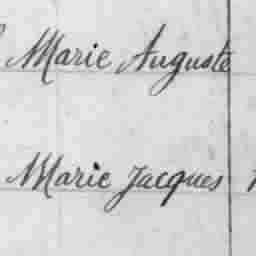 Marie Auguste
Marie Jacques